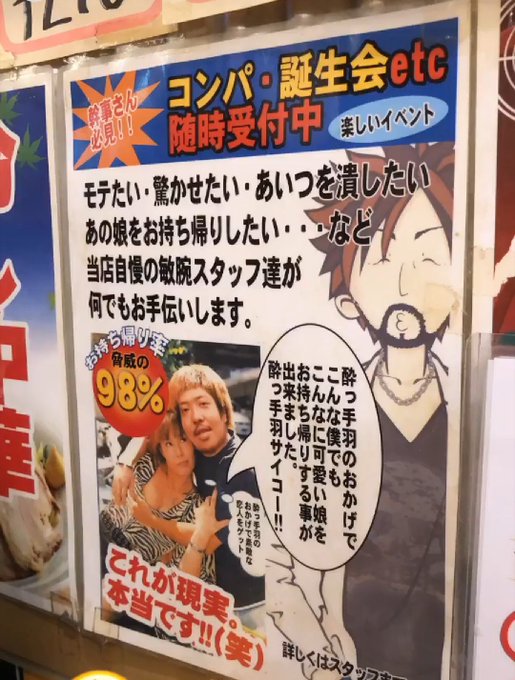 幹事さん
必見!!
コンパ・誕生会etc
随時受付中
楽しいイベント
モテたい・驚かせたい・あいつを潰したい
あの娘をお持ち帰りしたい・・・など
当店自慢の敏腕スタッフ達が
何でもお手伝いします。
お持ち帰り率
脅威の
98%
酔っ手羽のおかげで
こんな僕でも
こんなに可愛い娘を
お持ち帰りする事が
出来ました。
酔っ手羽サイコー!!
酔っ手羽の
おかげで素敵な
恋人をゲット
これが現実。
本当です!!(笑)
詳しくはスタッフま
中華